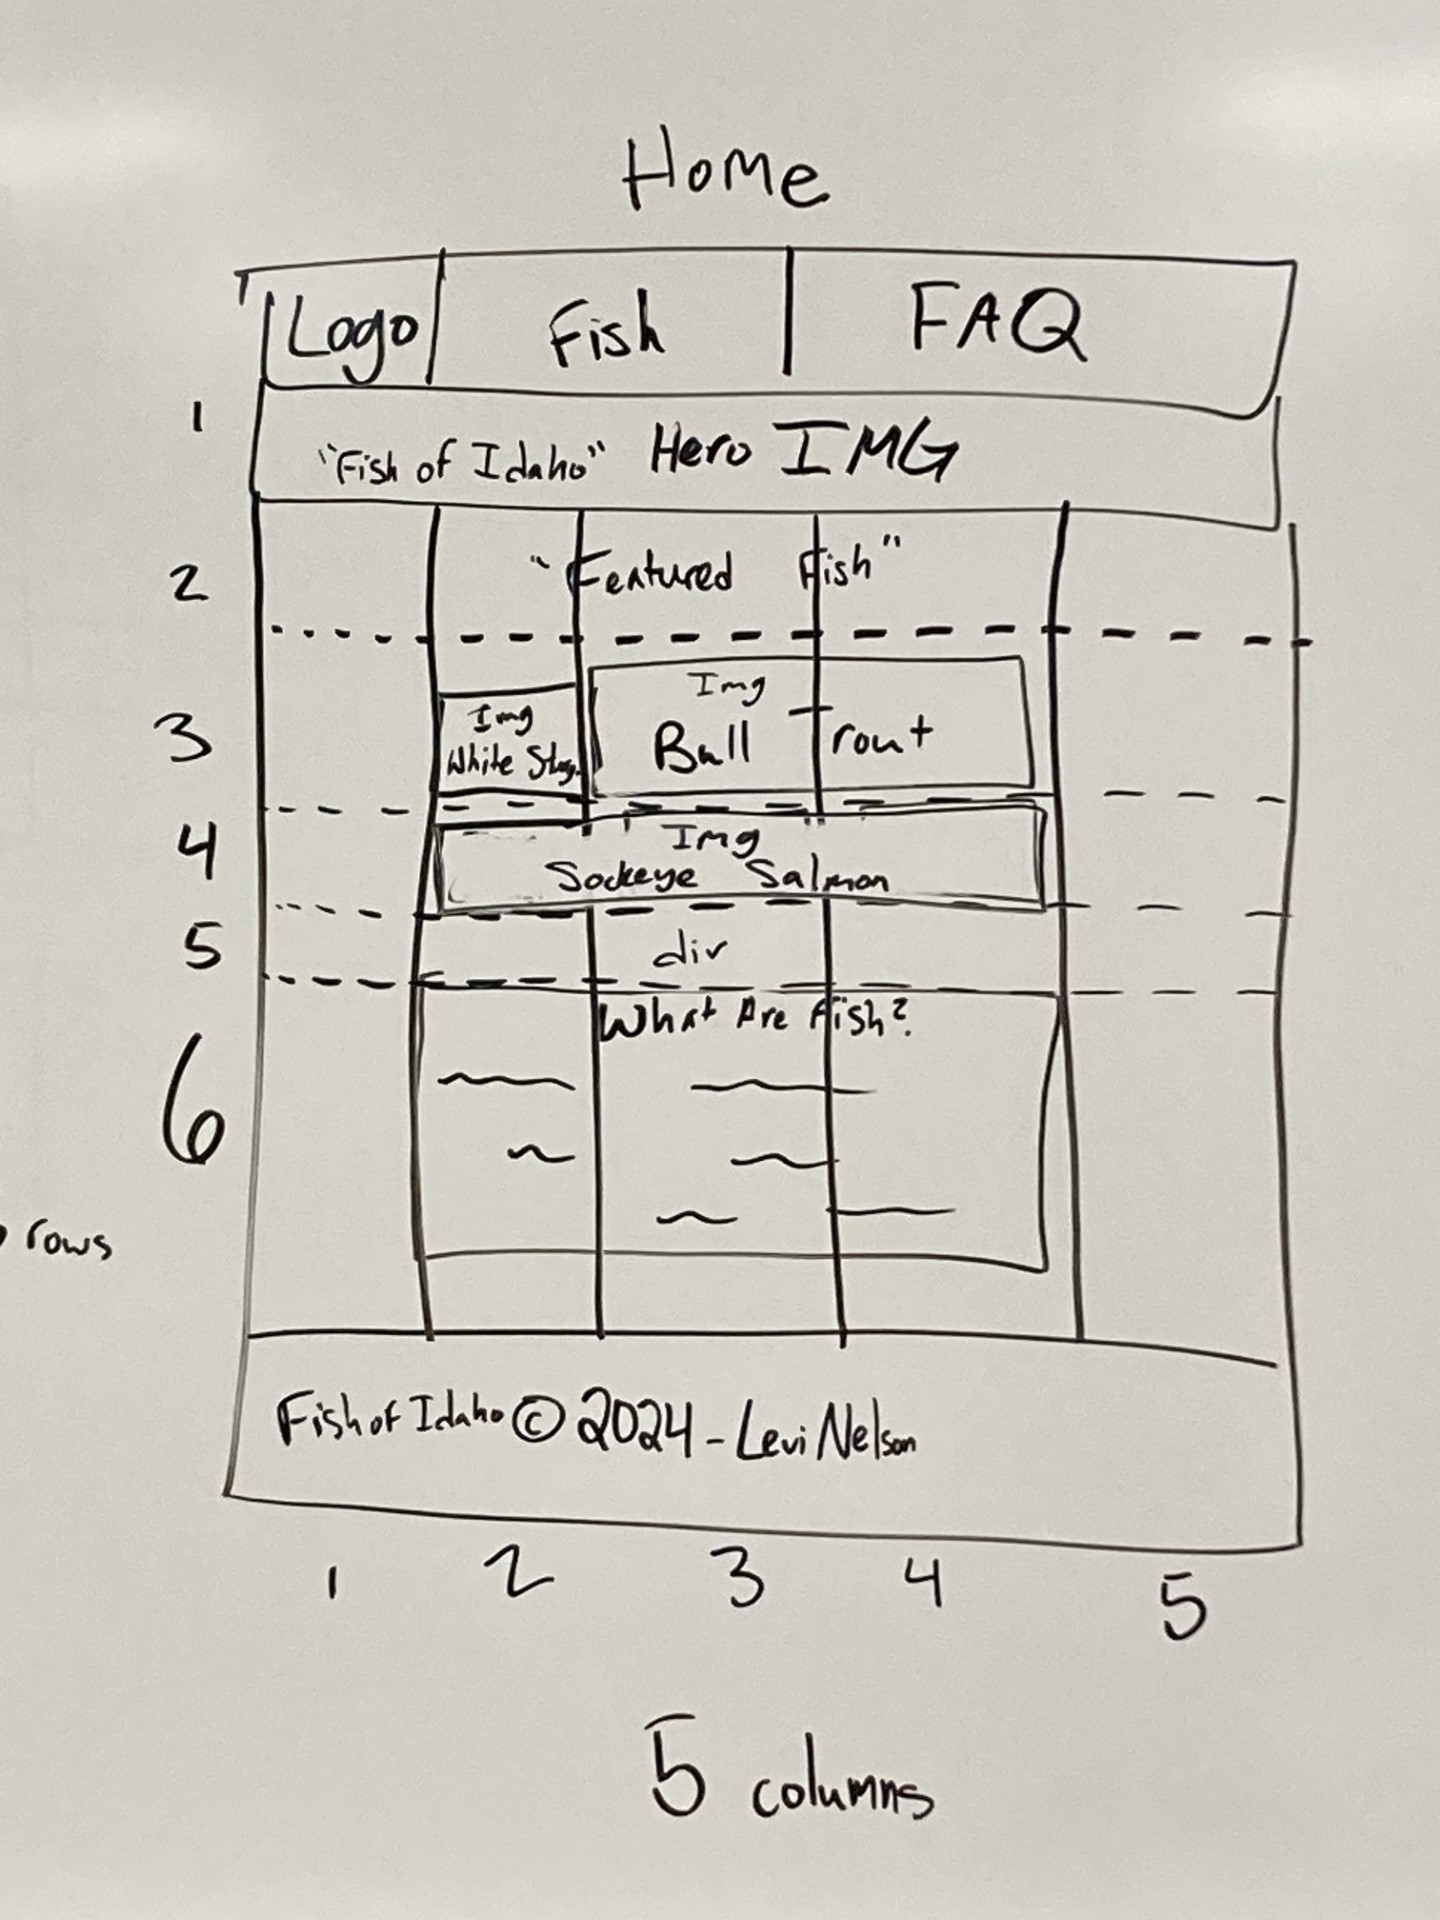 Home
Logo Fish FAQ
1
"Fish of Idaho" Hero IMG
2
"Featured Fish"
3
Img
White Stug.
Img
Bull Trout
4
Img
Sockeye Salmon
5
div
6
What Are Fish?
rows
Fish of Idaho © 2024 - Levi Nelson
1 2 3 4 5
5 columns